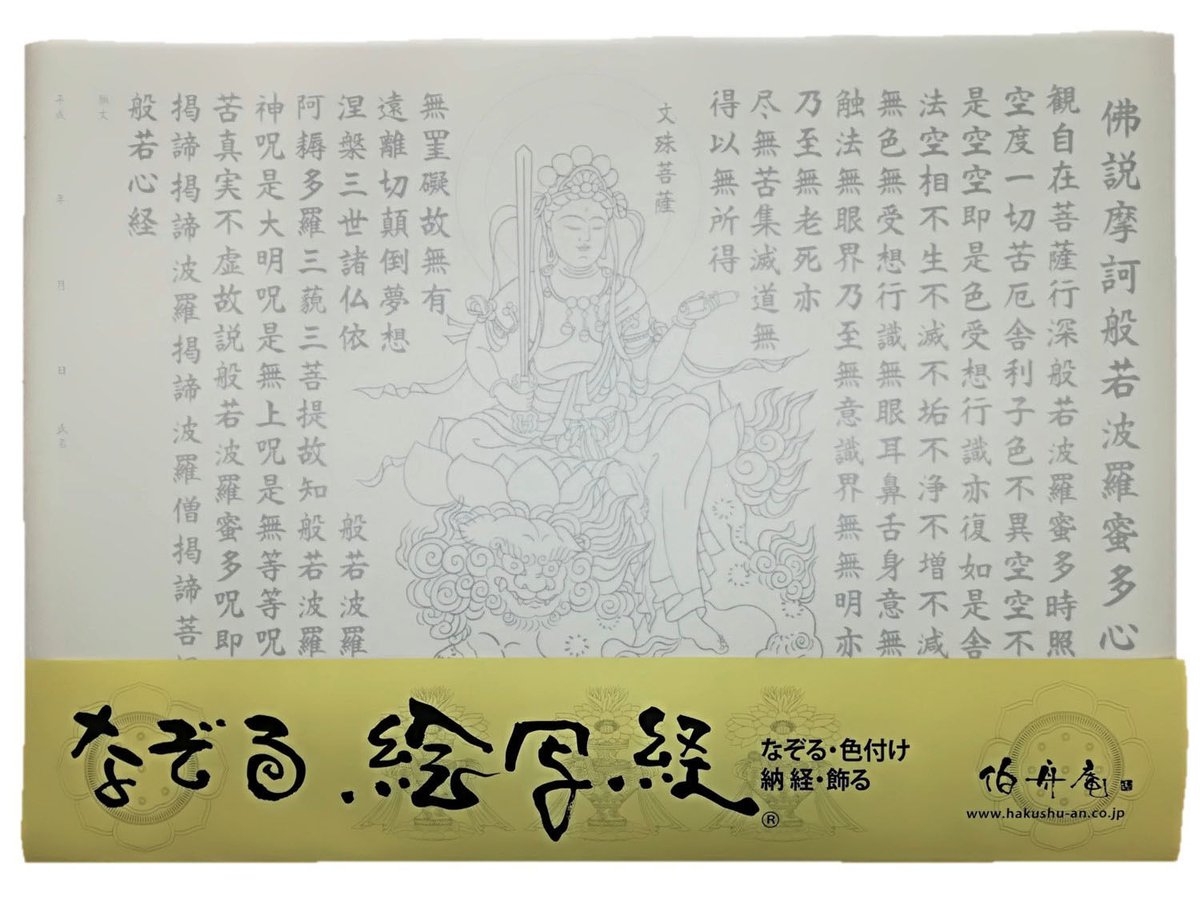 佛説摩訶般若波羅蜜多心
観自在菩薩行深般若波羅蜜多時照
空度一切苦厄舎利子色不異空空不
是空空即是色受想行識亦復如是舎
法空相不生不滅不垢不浄不増不減
無色無受想行識無眼耳鼻舌身意無
触法無眼界乃至無意識界無無明亦
乃至無老死亦
尽無苦集滅道無
得以無所得
文殊菩薩
無罣礙故無有
遠離切顛倒夢想
涅槃三世諸仏依 般若波羅
阿耨多羅三藐三菩提故知般若波羅
神呪是大明呪是無上呪是無等等呪
苦真実不虚故説般若波羅蜜多呪即
掲諦掲諦波羅掲諦波羅僧掲諦菩
般若心経
願文
平成 年 月 日 氏名
なぞる絵写経®
なぞる・色付け
納経・飾る
伯舟庵
www.hakushu-an.co.jp